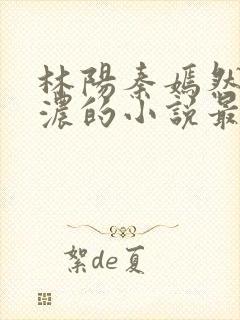 林陽秦嫣然
濃的小説最
絮de夏